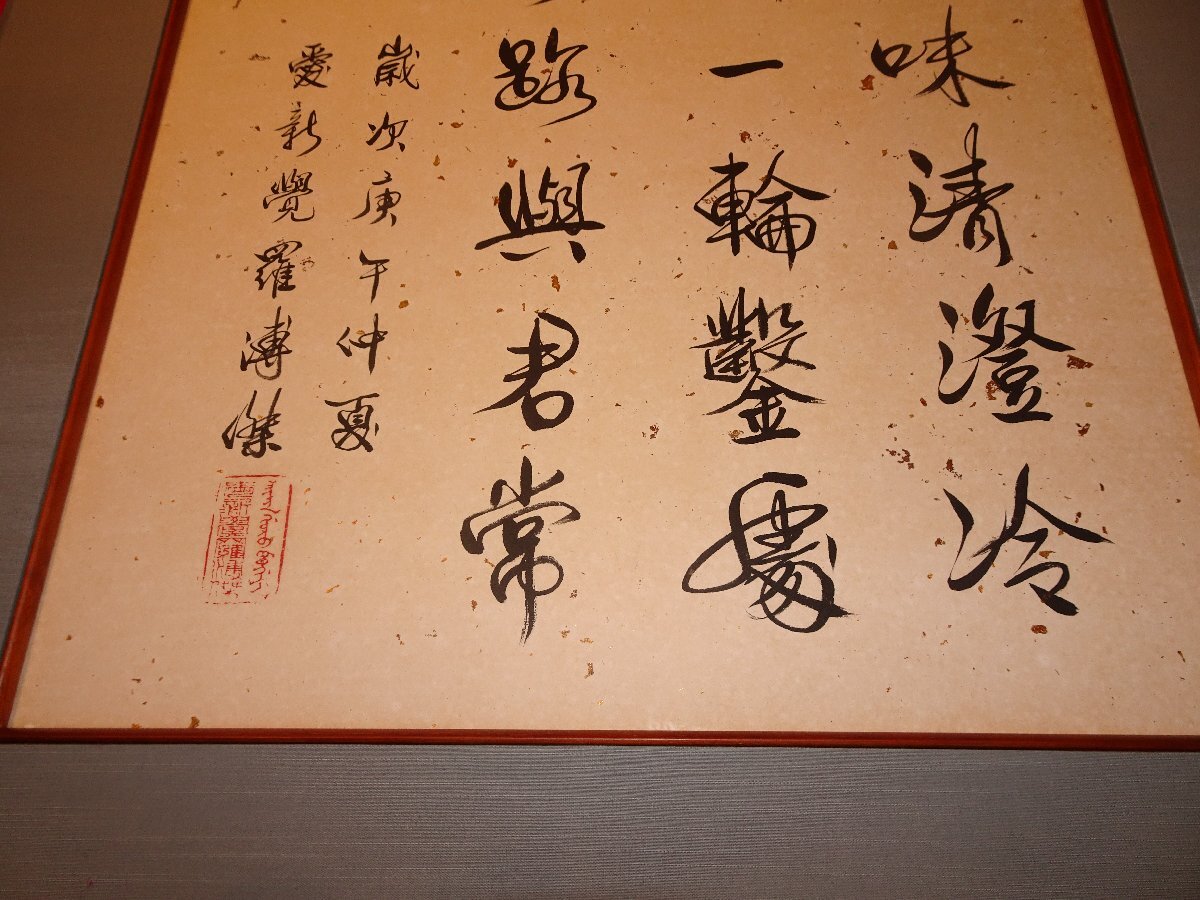 味清澄冷
一輪鑿處
與君常
歲次庚午仲夏
愛新覺羅溥傑